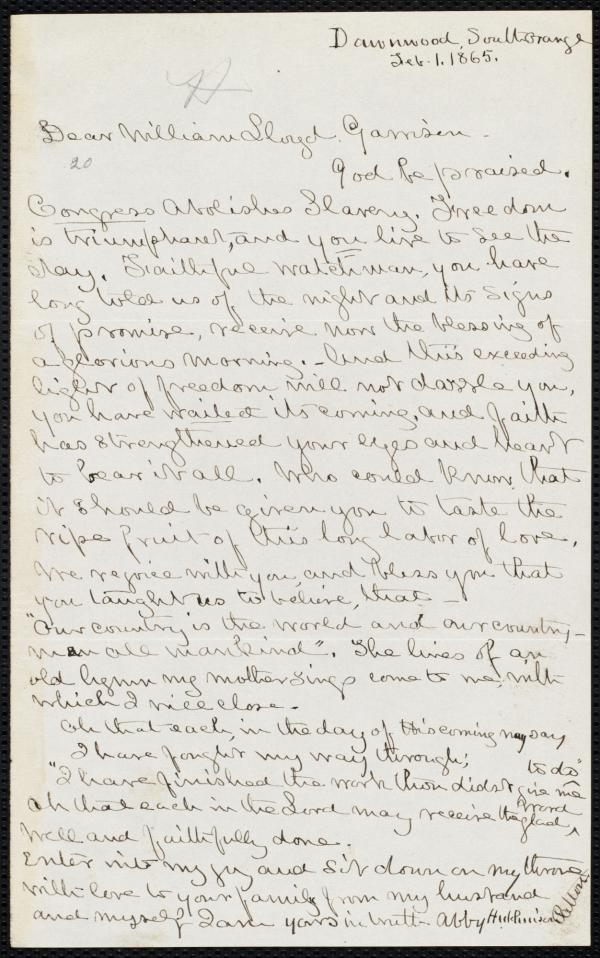 Dawnwood, South Orange
Feb. 1. 1865.
Dear William Lloyd Garrison -
20
God be praised.
Congress Abolishes Slavery. Freedom
is triumphant, and you live to see the
day. Faithful watchman, you have
long told us of the night and its signs
of promise, receive now the blessing of
a glorious morning. - And this exceeding
light of freedom will not dazzle you,
you have waited its coming, and faith
has strengthened your eyes and heart
to bear it all. Who could know that
it should be given you to taste the
ripe fruit of this long labor of love.
We rejoice with you, and bless you that
you taught us to believe, that -
"Our country is the world and our country-
men all mankind". The lines of an
old hymn my mother sings come to me, with
which I will close -
Oh that each, in the day of His coming may say
I have fought my way through;
"I have finished the work thou didst give me to do"
Oh that each in the Lord may receive the glad word
Well and faithfully done.
Enter into my joy and sit down on my throne
With love to your family from my husband
and myself I am yours in truth Abby Hutchinson Patton